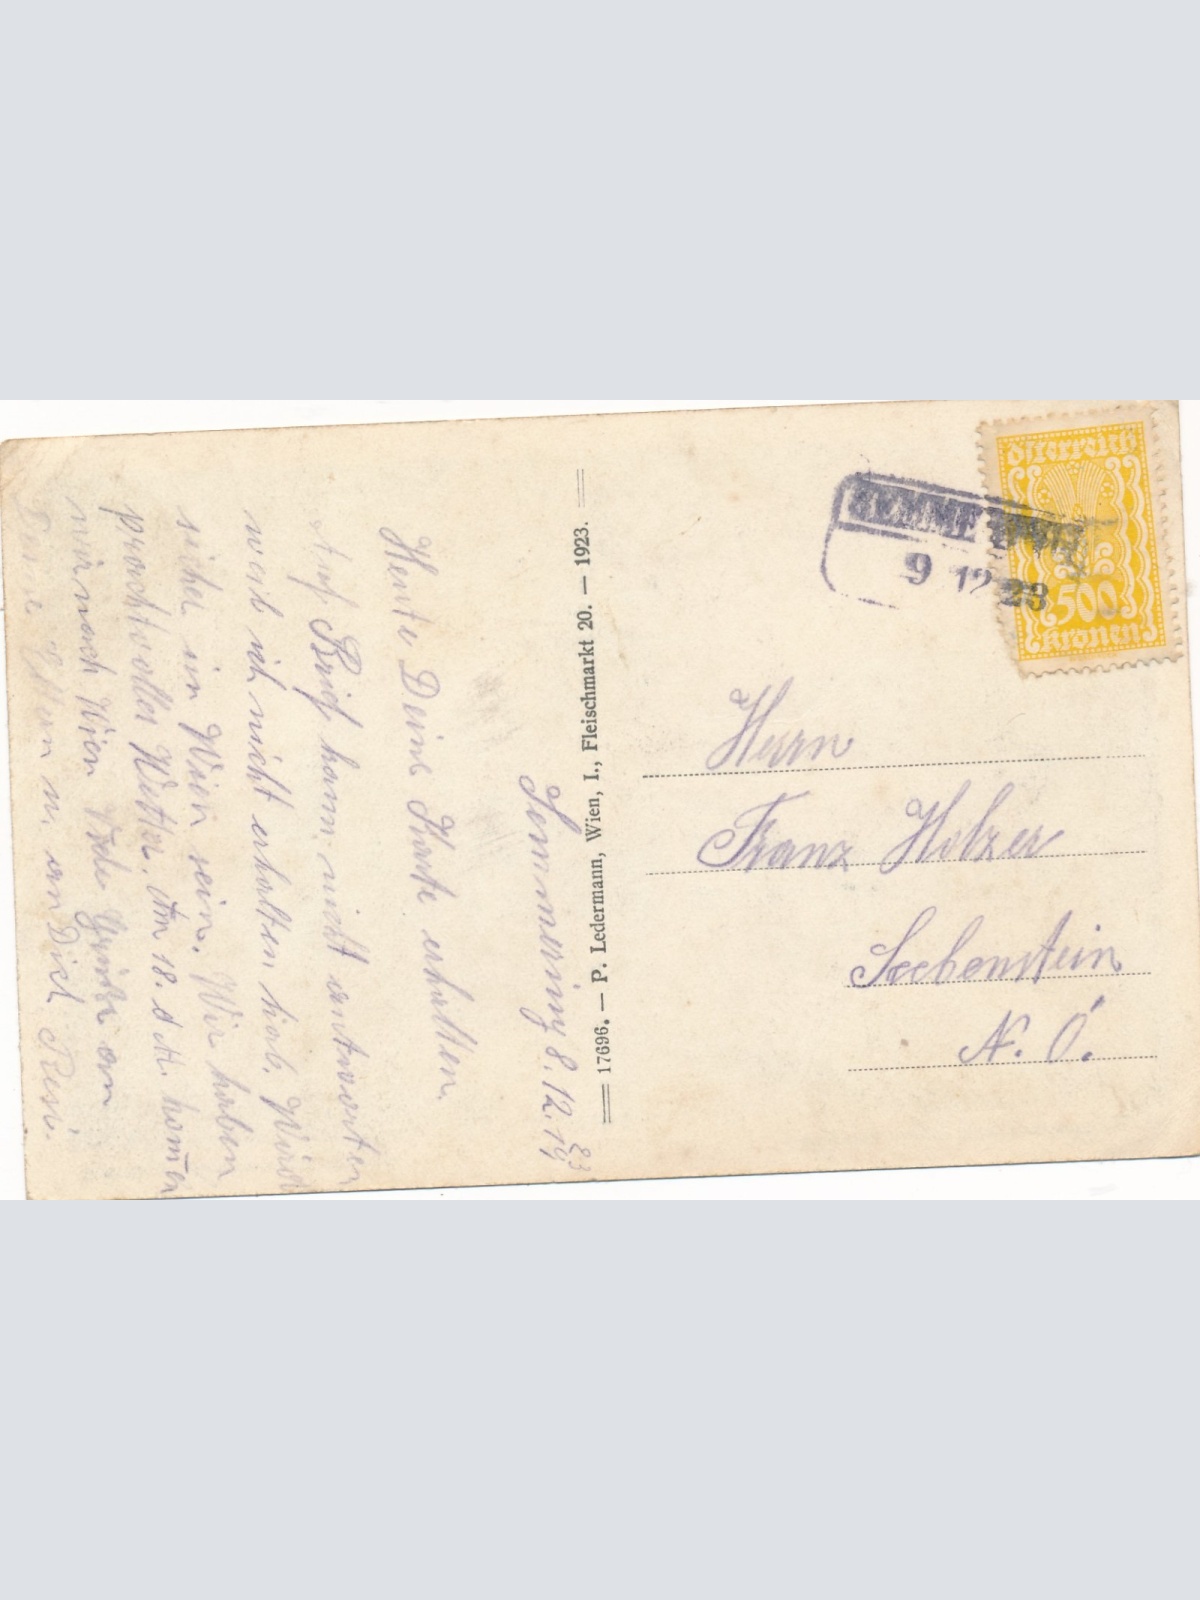 Semmering 8.12.19
23
Heute Deine Karte erhalten.
Auf Brief kann nicht antworten
weil ich nicht erhalten hab. Wirst
sicher in Wien sein. Wir haben
prachtvolles Wetter. Am 18. d. M. kom̄en
wir nach Wien. Viele Grüße an
Deine Eltern u. an Dich Resi.
17696. — P. Ledermann, Wien, I., Fleischmarkt 20. — 1923.
Österreich
500
Kronen
9 12 23
Herrn
Franz Holzer
Seebenstein
N. Ö.